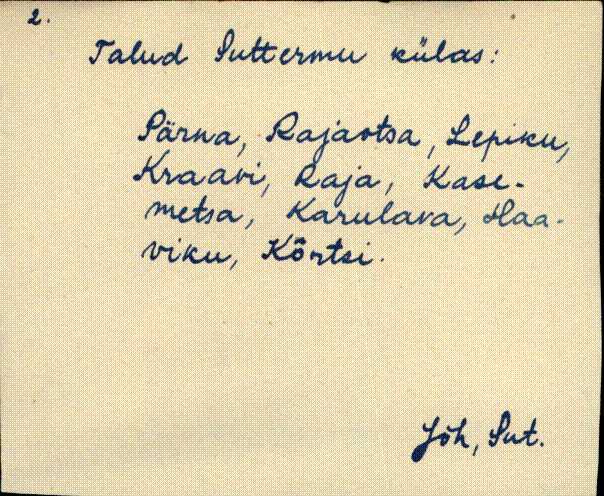 2.
Talud Suttermu külas:
Pärna, Rajaotsa, Lepiku,
Kraavi, Raja, Kase-
metsa, Karulava, Haa-
viku, Kõrtsi.
Jõh, Sut.